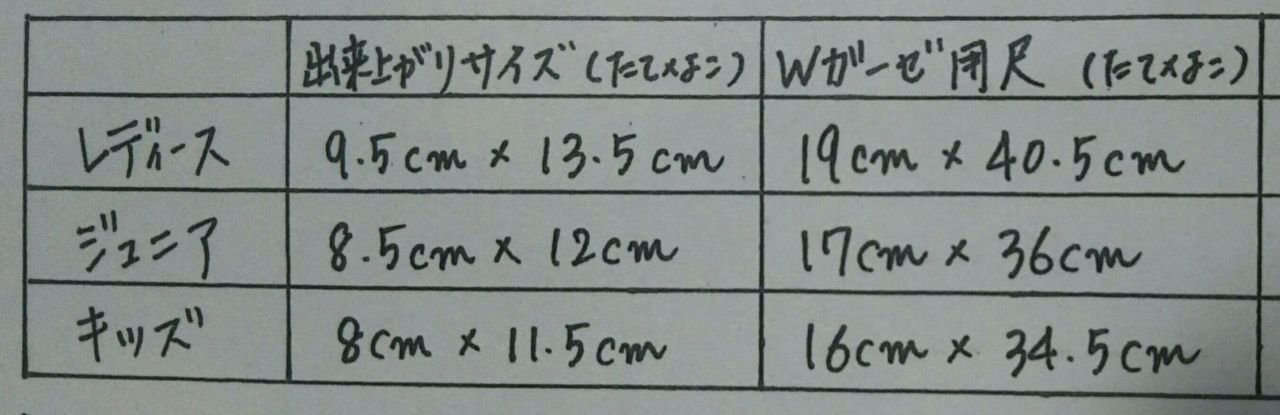 出来上がりサイズ(たて×よこ) Wガーゼ用尺 (たて×よこ)
レディース 9.5cm × 13.5cm 19cm × 40.5cm
ジュニア 8.5cm × 12cm 17cm × 36cm
キッズ 8cm × 11.5cm 16cm × 34.5cm